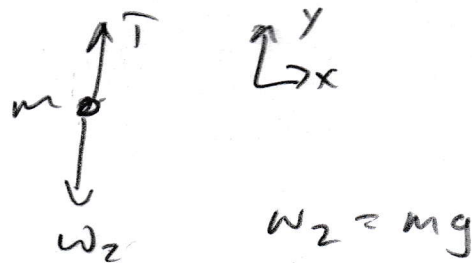 T
y
m
x
w₂
w₂ = mg